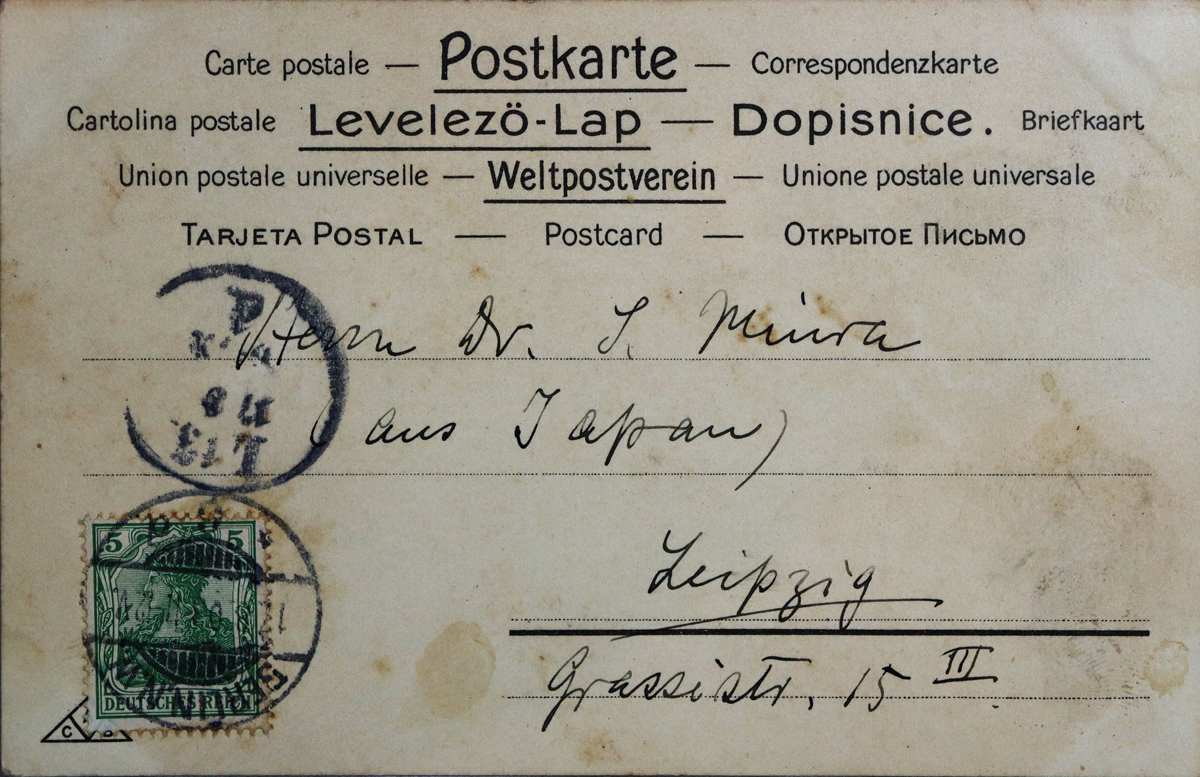 Carte postale — Postkarte — Correspondenzkarte
Cartolina postale Levelező-Lap — Dopisnice. Briefkaart
Union postale universelle — Weltpostverein — Unione postale universale
TARJETA POSTAL — Postcard — ОТКРЫТОЕ ПИСЬМО
Herrn Dr. S. Miura
(aus Japan)
Leipzig
Grassistr. 15 III
5 5
DEUTSCHES REICH
C